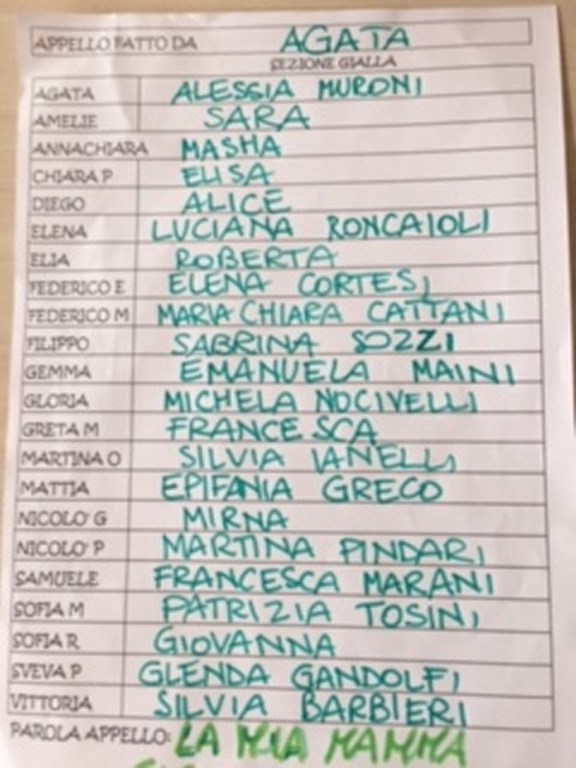 APPELLO FATTO DA AGATA
SEZIONE GIALLA
AGATA ALESSIA MURONI
AMELIE SARA
ANNACHIARA MASHA
CHIARA P ELISA
DIEGO ALICE
ELENA LUCIANA RONCAIOLI
ELIA ROBERTA
FEDERICO E ELENA CORTESI
FEDERICO M MARIA CHIARA CATTANI
FILIPPO SABRINA SOZZI
GEMMA EMANUELA MAINI
GLORIA MICHELA NOCIVELLI
GRETA M FRANCESCA
MARTINA O SILVIA IANELLI
MATTIA EPIFANIA GRECO
NICOLO' G MIRNA
NICOLO' P MARTINA PINDARI
SAMUELE FRANCESCA MARANI
SOFIA M PATRIZIA TOSINI
SOFIA R GIOVANNA
SVEVA P GLENDA GANDOLFI
VITTORIA SILVIA BARBIERI
PAROLA APPELLO: LA MIA MAMMA